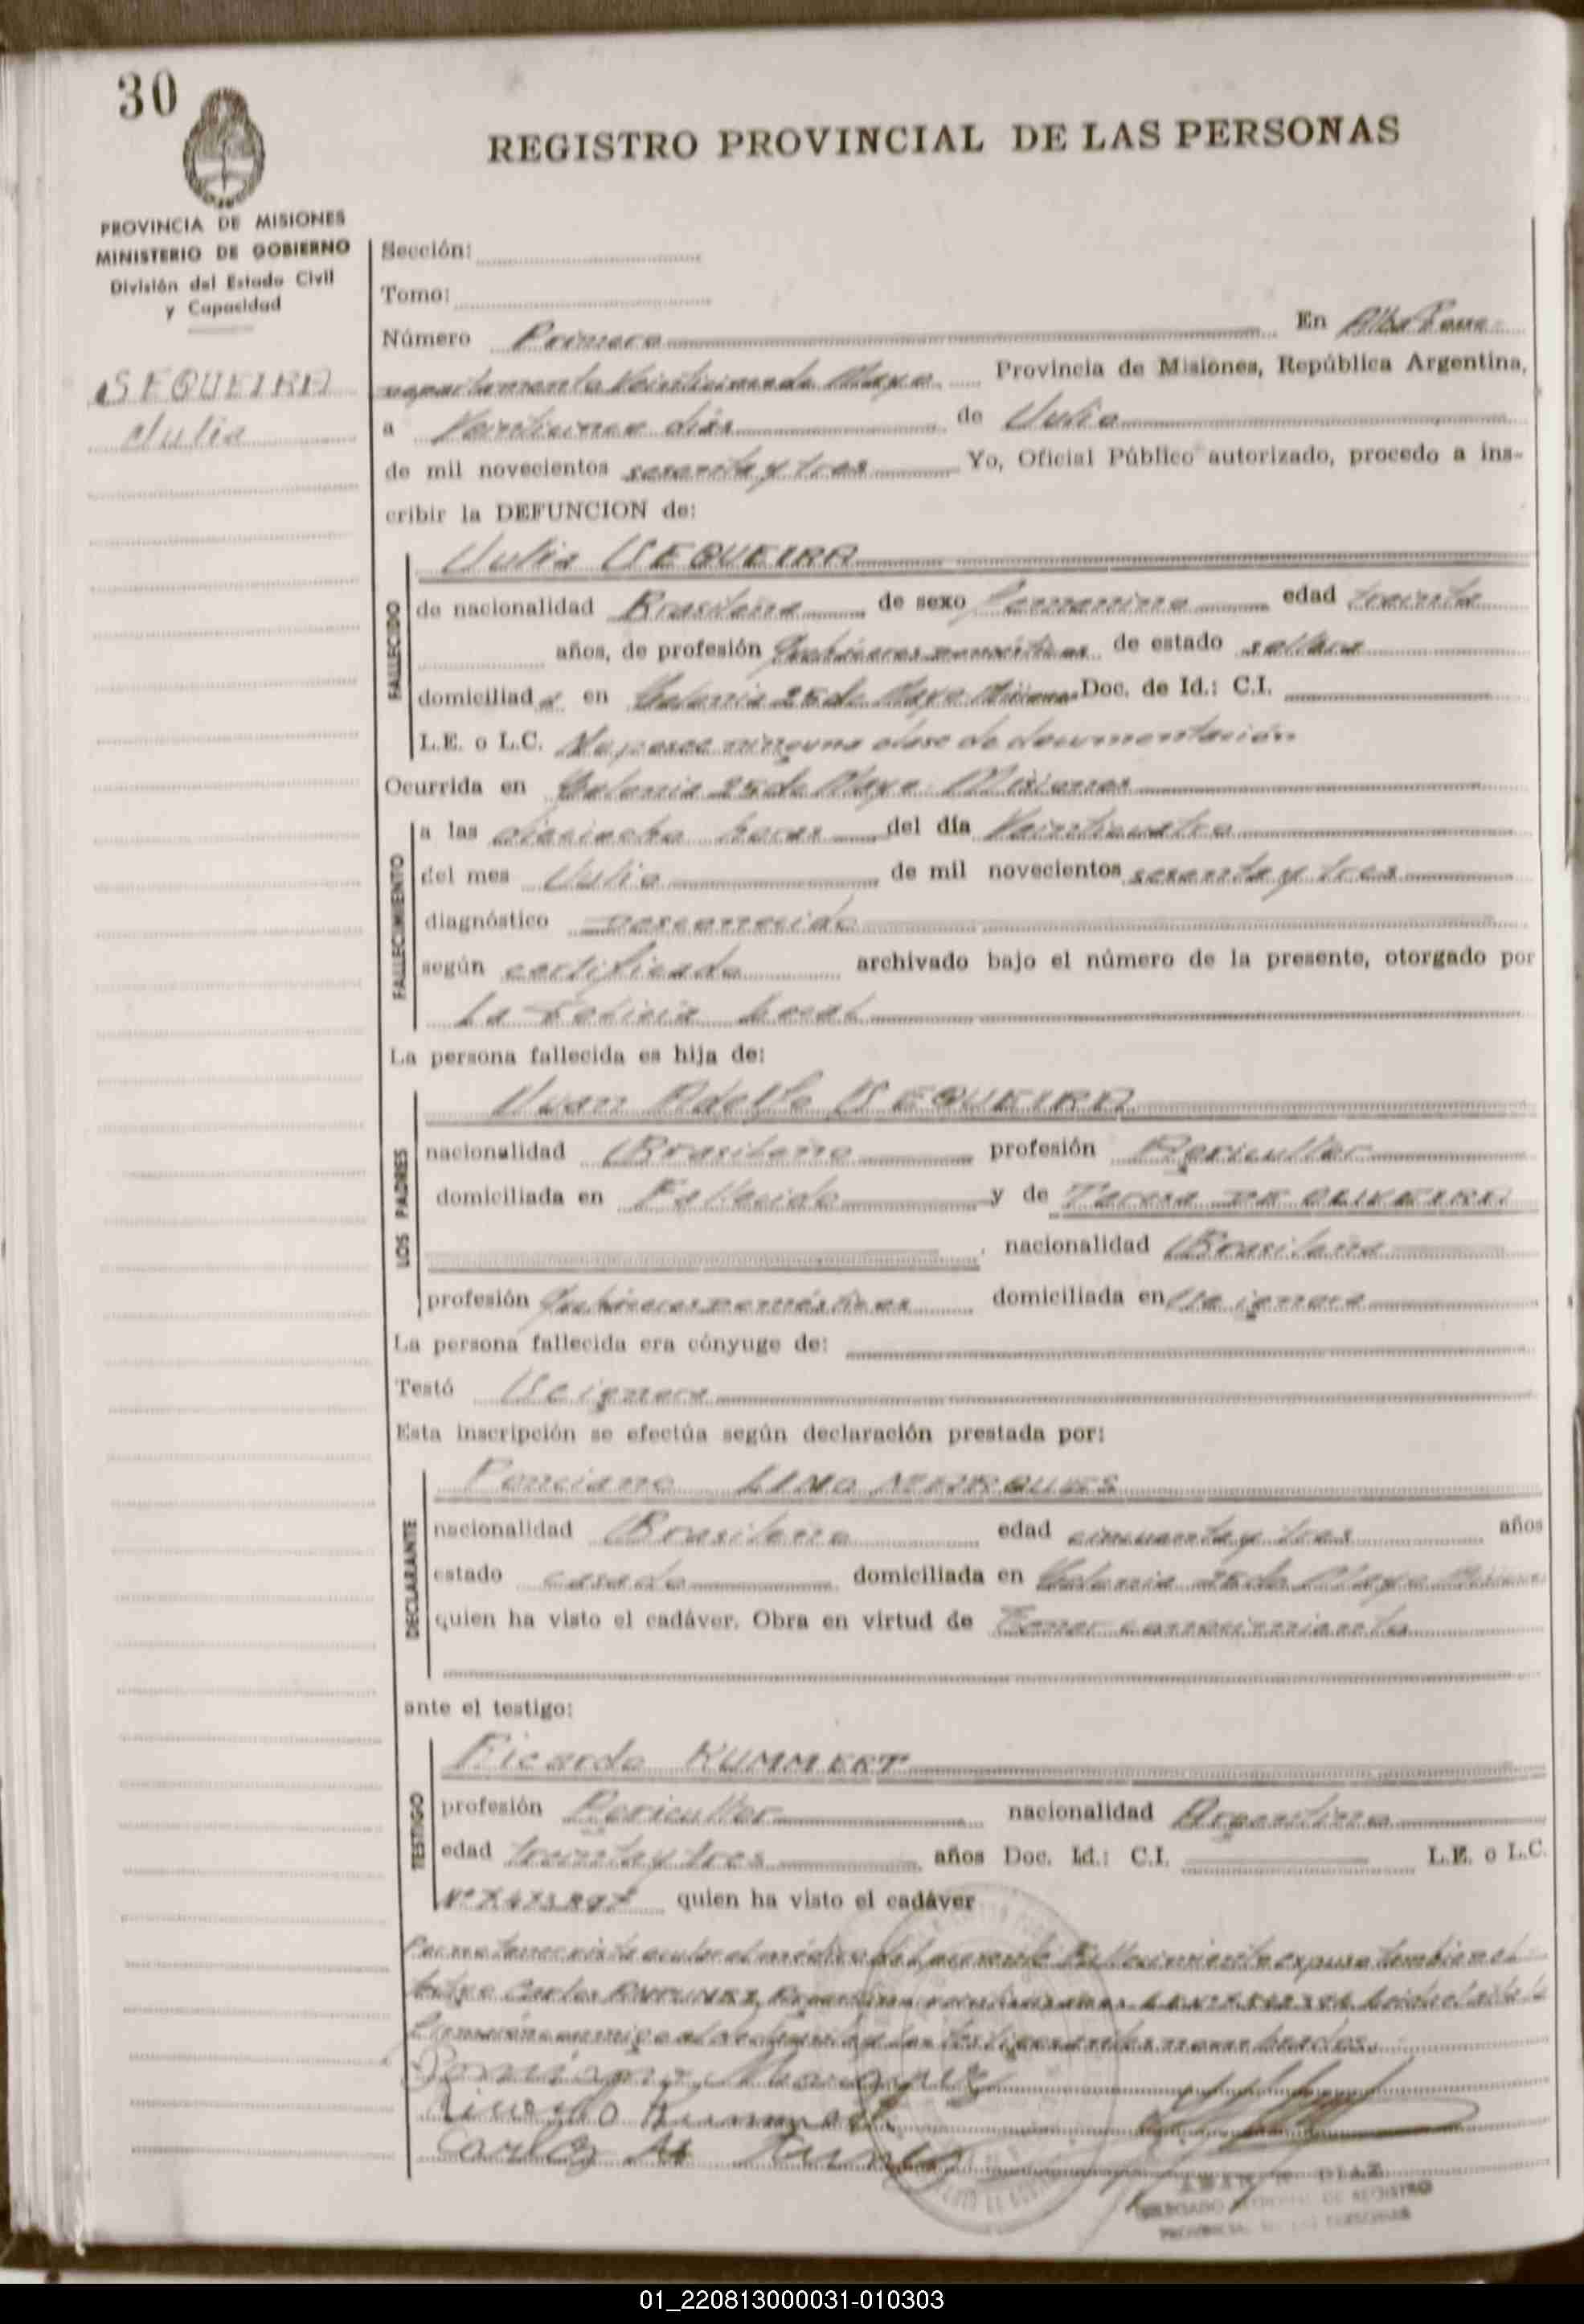 30
REGISTRO PROVINCIAL DE LAS PERSONAS
PROVINCIA DE MISIONES
MINISTERIO DE GOBIERNO
División del Estado Civil
y Capacidad
SEQUEIRA
Julia
Sección:
Tomo:
Número Primero En Alba Posse
departamento Veinticinco de Mayo Provincia de Misiones, República Argentina,
a días de Julio
de mil novecientos sesenta y tres Yo, Oficial Público autorizado, procedo a ins-
cribir la DEFUNCION de:
Julia SEQUEIRA
FALLECIDO
de nacionalidad Brasileña de sexo femenino edad treinta
años, de profesión Quehaceres domésticos de estado soltera
domiciliad a en Colonia 25 de Mayo Misiones Doc. de Id.: C.I.
L.E. o L.C. No posee ninguna clase de documentación
Ocurrida en Colonia 25 de Mayo Misiones
FALLECIMIENTO
a las dieciocho horas del día Veinticuatro
del mes Julio de mil novecientos sesenta y tres
diagnóstico desconocido
según certificado archivado bajo el número de la presente, otorgado por
La Policia Local
La persona fallecida es hija de:
Juan Adolfo SEQUEIRA
LOS PADRES
nacionalidad Brasileño profesión Agricultor
domiciliada en Fallecido y de Teresa DE OLIVEIRA
nacionalidad Brasileña
profesión Quehaceres domésticos domiciliada en Se ignora
La persona fallecida era cónyuge de:
Testó Se ignora
Esta inscripción se efectúa según declaración prestada por:
Ponciano LINO MARQUES
DECLARANTE
nacionalidad Brasileño edad cincuenta y tres años
estado casado domiciliada en Colonia 25 de Mayo Misiones
quien ha visto el cadáver. Obra en virtud de Tener conocimiento
ante el testigo:
Ricardo KUMMERT
TESTIGO
profesión Agricultor nacionalidad Argentino
edad treinta y tres años Doc. Id.: C.I. L.E. o L.C.
Nº quien ha visto el cadáver
Por no tener vista ocular el médico del presente Fallecimiento expuso tambien el
testigo Carlos ANTUNEZ Argentino
conmigo el declarante y los testigos antes nombrados.
Ponciano Marques
Ricardo Kummert
Carlos
DIAZ
DELEGADO DE REGISTRO
PROVINCIAL DE LAS PERSONAS
01_220813000031-010303